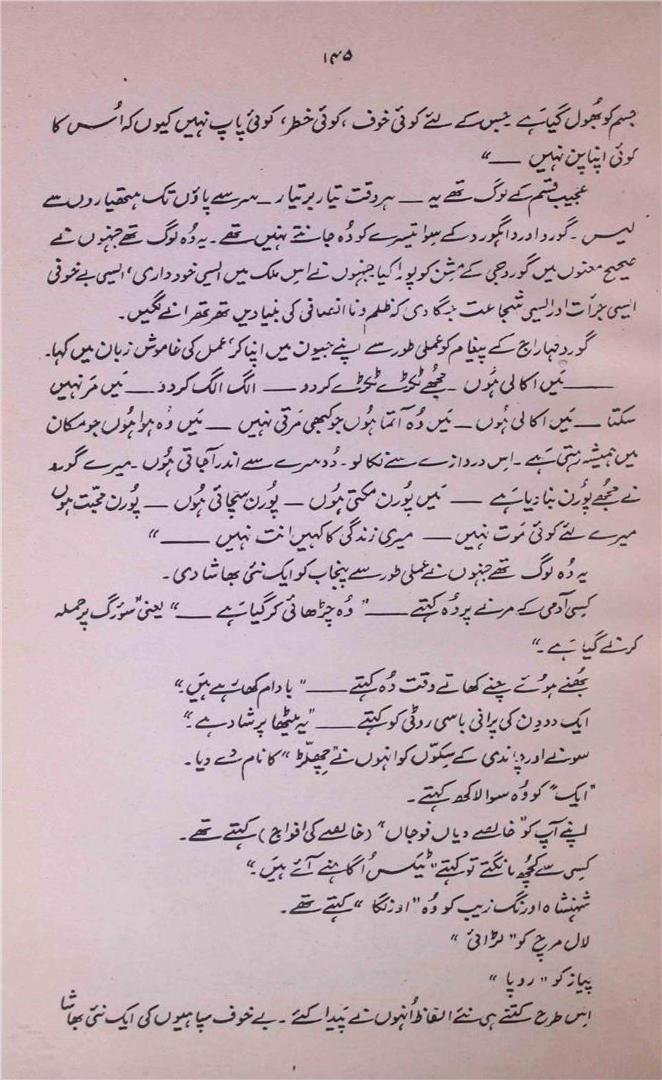 ۱۴۵
جسم کو بھول گیا ہے جس کے لئے کوئی خوف، کوئی خطر، کوئی پاپ نہیں کیوں کہ اُس کا
کوئی اپنا پن نہیں ــــ“
عجیب قسم کے لوگ تھے یہ ــــ ہر وقت تیار بر تیار ــ سر سے پاؤں تک ہتھیاروں سے
لیس ۔ گورو اور واہگورو کے سوا تیسرے کو وہ جانتے نہیں تھے ۔ یہ وہ لوگ تھے جنہوں نے
صحیح معنوں میں گوروجی کے مشن کو پورا کیا جنہوں نے اس ملک میں ایسی خود داری، ایسی بے خوفی
ایسی جرأت اور ایسی شجاعت جگا دی کہ ظلم و نا انصافی کی بنیادیں تھرتھرانے لگیں۔
گورو مہاراج کے پیغام کو عملی طور سے اپنے جیون میں اپنا کر، عمل کی خاموش زبان میں کہا۔
ــــــ میں اکالی ہوں ۔ مجھے ٹکڑے ٹکڑے کر دو ــــ الگ الگ کر دو ــــ میں مر نہیں
سکتا ــــ میں اکالی ہوں ــــ میں وہ آتما ہوں جو کبھی مرتی نہیں ــــ میں وہ ہوا ہوں جو مکان
میں ہمیشہ رہتی ہے ۔ اس دروازے سے نکالو ۔ دوسرے سے اندر آ جاتی ہوں ۔ میرے گورو
نے مجھے پورن بنا دیا ہے ــــ میں پورن مکتی ہوں ــــ پورن سچائی ہوں ــــ پورن محبت ہوں
میرے لئے کوئی موت نہیں ــــ میری زندگی کا کہیں انت نہیں ــــــ“
یہ وہ لوگ تھے جنہوں نے عملی طور سے پنجاب کو ایک نئی بھاشا دی۔
کسی آدمی کے مرنے پر وہ کہتے ــــــ ”وہ چڑھائی کر گیا ہے ــــــ“ یعنی ”سورگ پر حملہ
کرنے گیا ہے۔“
بھنے ہوئے چنے کھاتے وقت وہ کہتے ــــــ ”بادام کھا رہے ہیں۔“
ایک دو دن کی پرانی باسی روٹی کو کہتے ــــــ ”یہ میٹھا پرشاد ہے۔“
سونے اور چاندی کے سکّوں کو انہوں نے ”چھلّڑ“ کا نام دے دیا۔
”ایک“ کو وہ سوا لاکھ کہتے۔
اپنے آپ کو ”خالصے دیاں فوجاں“ (خالصے کی افواج) کہتے تھے۔
کسی سے کچھ مانگتے تو کہتے ”ٹیکس اُگاہنے آئے ہیں۔“
شہنشاہ اورنگ زیب کو وہ ”اورنگا“ کہتے تھے۔
لال مرچ کو ”لڑاکی“
پیاز کو ”روپا“
اس طرح کتنے ہی نئے الفاظ اُنہوں نے پیدا کئے ۔ بے خوف سپاہیوں کی ایک نئی بھاشا